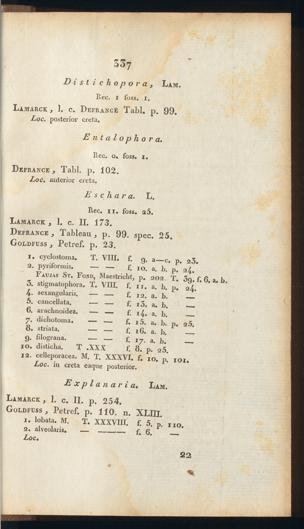 337
Distichopora, LAM.
Rec. 1 foss. 1.
LAMARCK, l. c. DEFRANCE Tabl. p. 99.
Loc. posterior creta.
Entalophora.
Rec. 0. foss. 1.
DEFRANCE, Tabl. p. 102.
Loc. anterior creta.
Eschara. L.
Rec. 11. foss. 25.
LAMARCK, l. c. II. 173.
DEFRANCE, Tableau, p. 99. spec. 25.
GOLDFUSS, Petref. p. 23.
1. cyclostoma. T. VIII. f. 9. a—c. p. 23.
2. pyriformis. — — f. 10. a. b. p. 24.
FAUJAS ST. FOND, Maestricht, p. 202. T. 39. f. 6. a. b.
3. stigmatophora. T. VIII. f. 11. a. b. p. 24.
4. sexangularis. — — f. 12. a. b. —
5. cancellata. — — f. 13. a. b. —
6. arachnoidea. — — f. 14. a. b. —
7. dichotoma. — — f. 15. a. b. p. 25.
8. striata. — — f. 16. a. b. —
9. filograna. — — f. 17. a. b. —
10. disticha. T .XXX f. 8. p. 25.
12. celleporacea. M. T. XXXVI. f. 10. p. 101.
Loc. in creta eaque posterior.
Explanaria. LAM.
LAMARCK, l. c. II. p. 254.
GOLDFUSS, Petref. p. 110. n. XLIII.
1. lobata. M. T. XXXVIII. f. 5. p. 110.
2. alveolaris. — ——— f. 6. —
Loc.
22